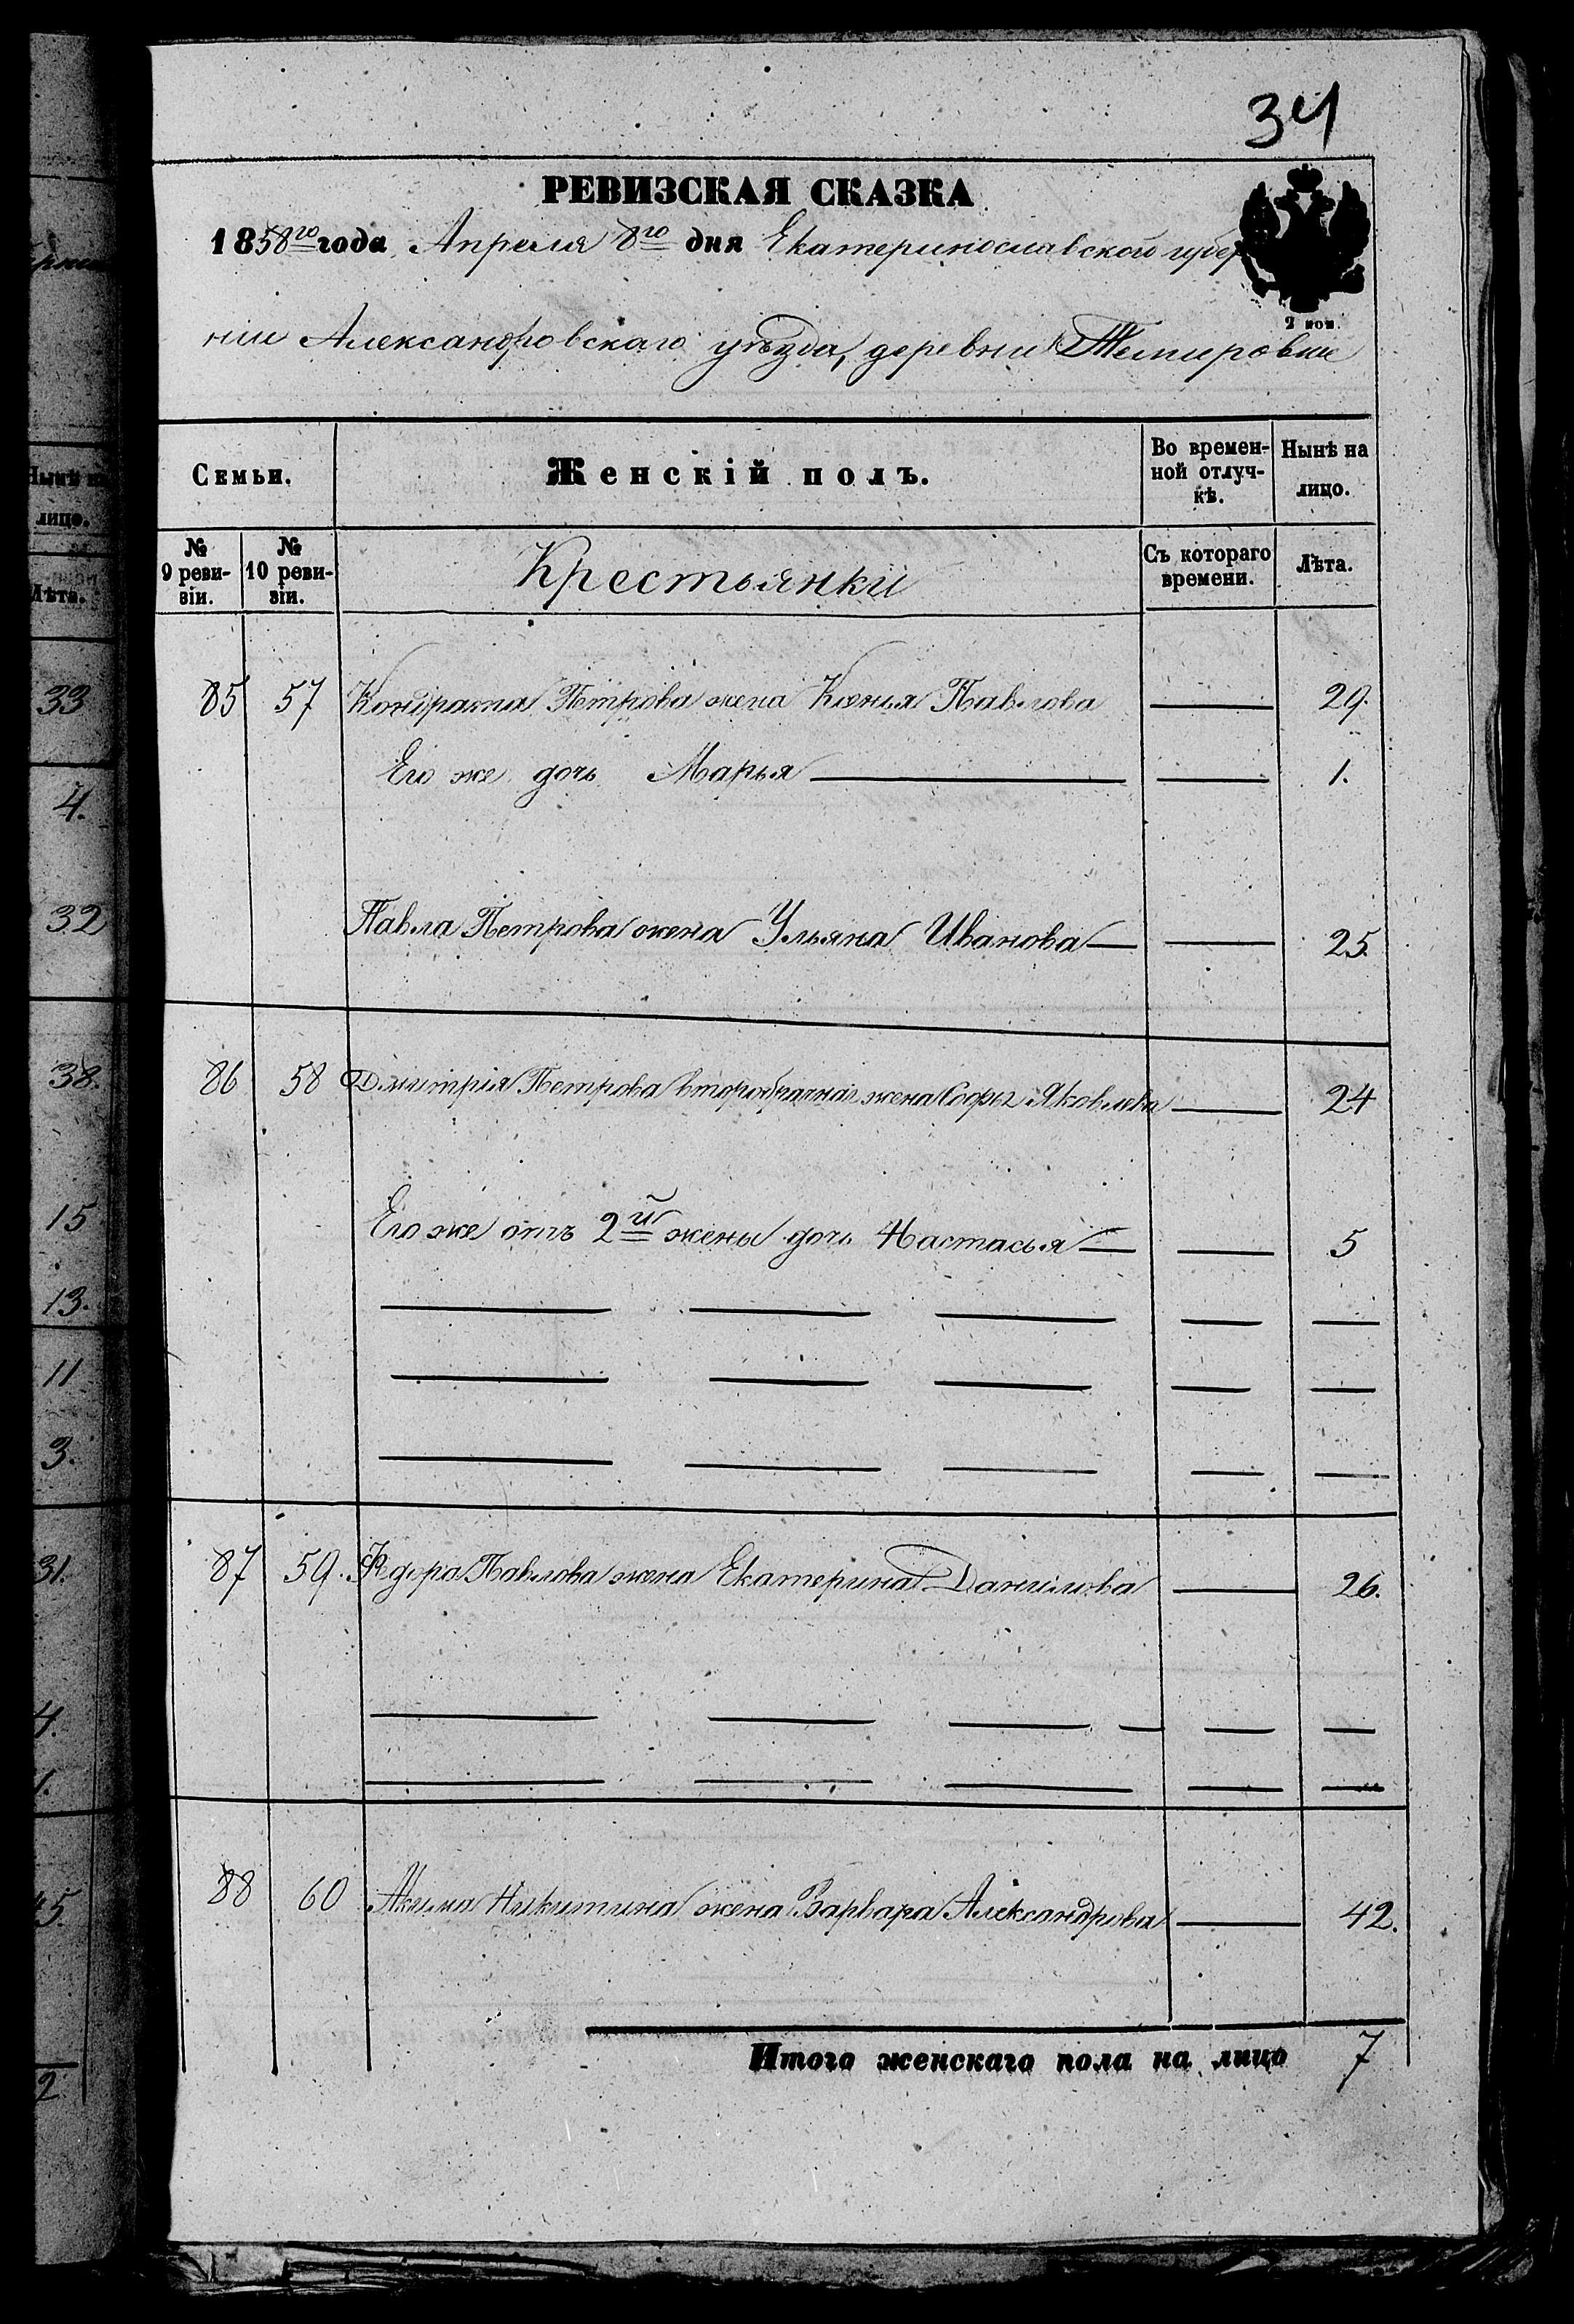 34
РЕВИЗСКАЯ СКАЗКА
1858го года Апреля 8го дня Екатеринославской губер
2 коп.
ніи Александровскаго уѣзда, деревни Темировки
Семьи.
Женскій полъ.
Во времен-
ной отлуч-
кѣ.
Нынѣ на
лицо.
№
9 реви-
зіи.
№
10 реви-
зіи.
Крестьянки
Съ котораго
времени.
Лѣта.
85 57 Кондрата Петрова жена Ксенья Павлова — 29.
Его же дочь Марья — — 1.
Павла Петрова жена Ульяна Иванова — — 25.
86 58 Дмитрія Петрова второбрачная жена Софья Яковлева — 24
Его же отъ 2й жены дочь Настасья — — 5
— — — — —
— — — — —
— — — — —
87 59. Федора Павлова жена Екатерина Данилова — 26.
— — — — — —
— — — — —
88 60 Акима Никитина жена Варвара Александрова — 42.
Итого женскаго пола на лицо 7
Нынѣ на
лицо.
Лѣта.
33
4.
32
38.
15
13.
11
3.
31.
4.
1.
2